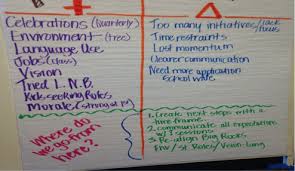 +
Δ
Celebrations (Quarterly)
Environment (tree)
Language Use
Jobs (class)
Vision
Tried I.N.B.
Kids seeking Rules
Morale (strong at
Too many initiatives/lack focus
Time restraints
Lost momentum
Clearer communication
Need more application
school wide
Where do
we go from
here?
1. Create next steps with a
time frame.
2. communicate all expectations
w/ sessions
3. Re-align Big Rocks
Env/St. Roles/Vision-Lang